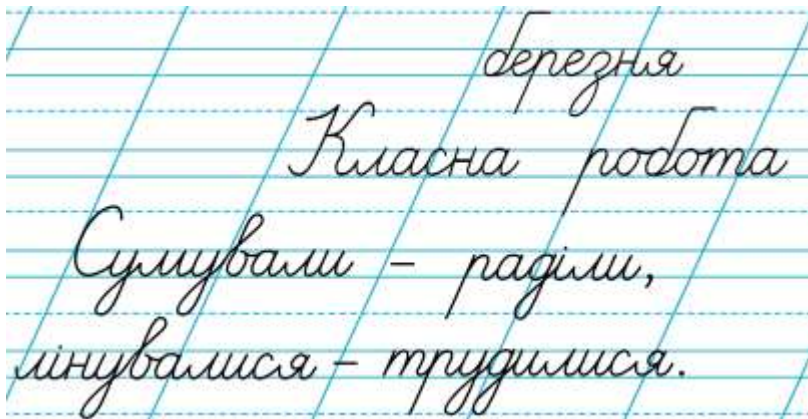 березня
Класна робота
Сумували – раділи,
лінувалися – трудилися.